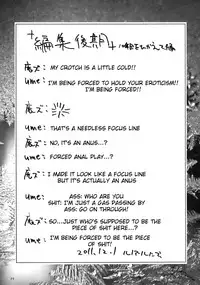 編集後記
MY CROTCH IS A LITTLE COLD!!
ume:
I'M BEING FORCED TO HOLD YOUR EROTICISM!!
ume:
THAT'S A NEEDLESS FOCUS LINE
NO, IT'S AN ANUS...?
ume:
FORCED ANAL PLAY...?
I MADE IT LOOK LIKE A FOCUS LINE
BUT IT'S ACTUALLY AN ANUS
ume:
ASS: WHO ARE YOU
SHIT: I'M JUST A GAS PASSING BY
ASS: GO ON THROUGH!
SO...JUST WHO'S SUPPOSED TO BE THE
PIECE OF SHIT HERE ...?
ume:
I'M BEING FORCED TO BE THE PIECE
OF SHIT!
2011.12.1